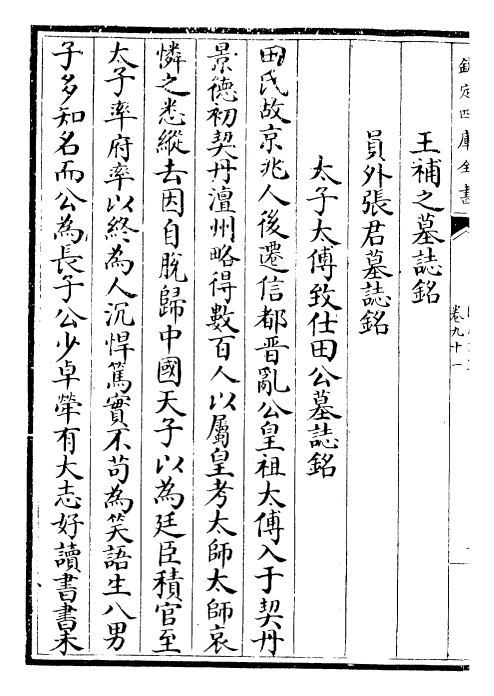 欽定四庫全書
卷九十一
王補之墓誌銘
員外張君墓誌銘
太子太傅致仕田公墓誌銘
田氏故京兆人後遷信都晉亂公皇祖太傅入于契丹
景徳初契丹澶州略得數百人以屬皇考太師太師哀
憐之悉縱去因自脫歸中國天子以為廷臣積官至
太子率府率以終為人沉悍篤實不苟為笑語生八男
子多知名而公為長子公少卓犖有大志好讀書書未